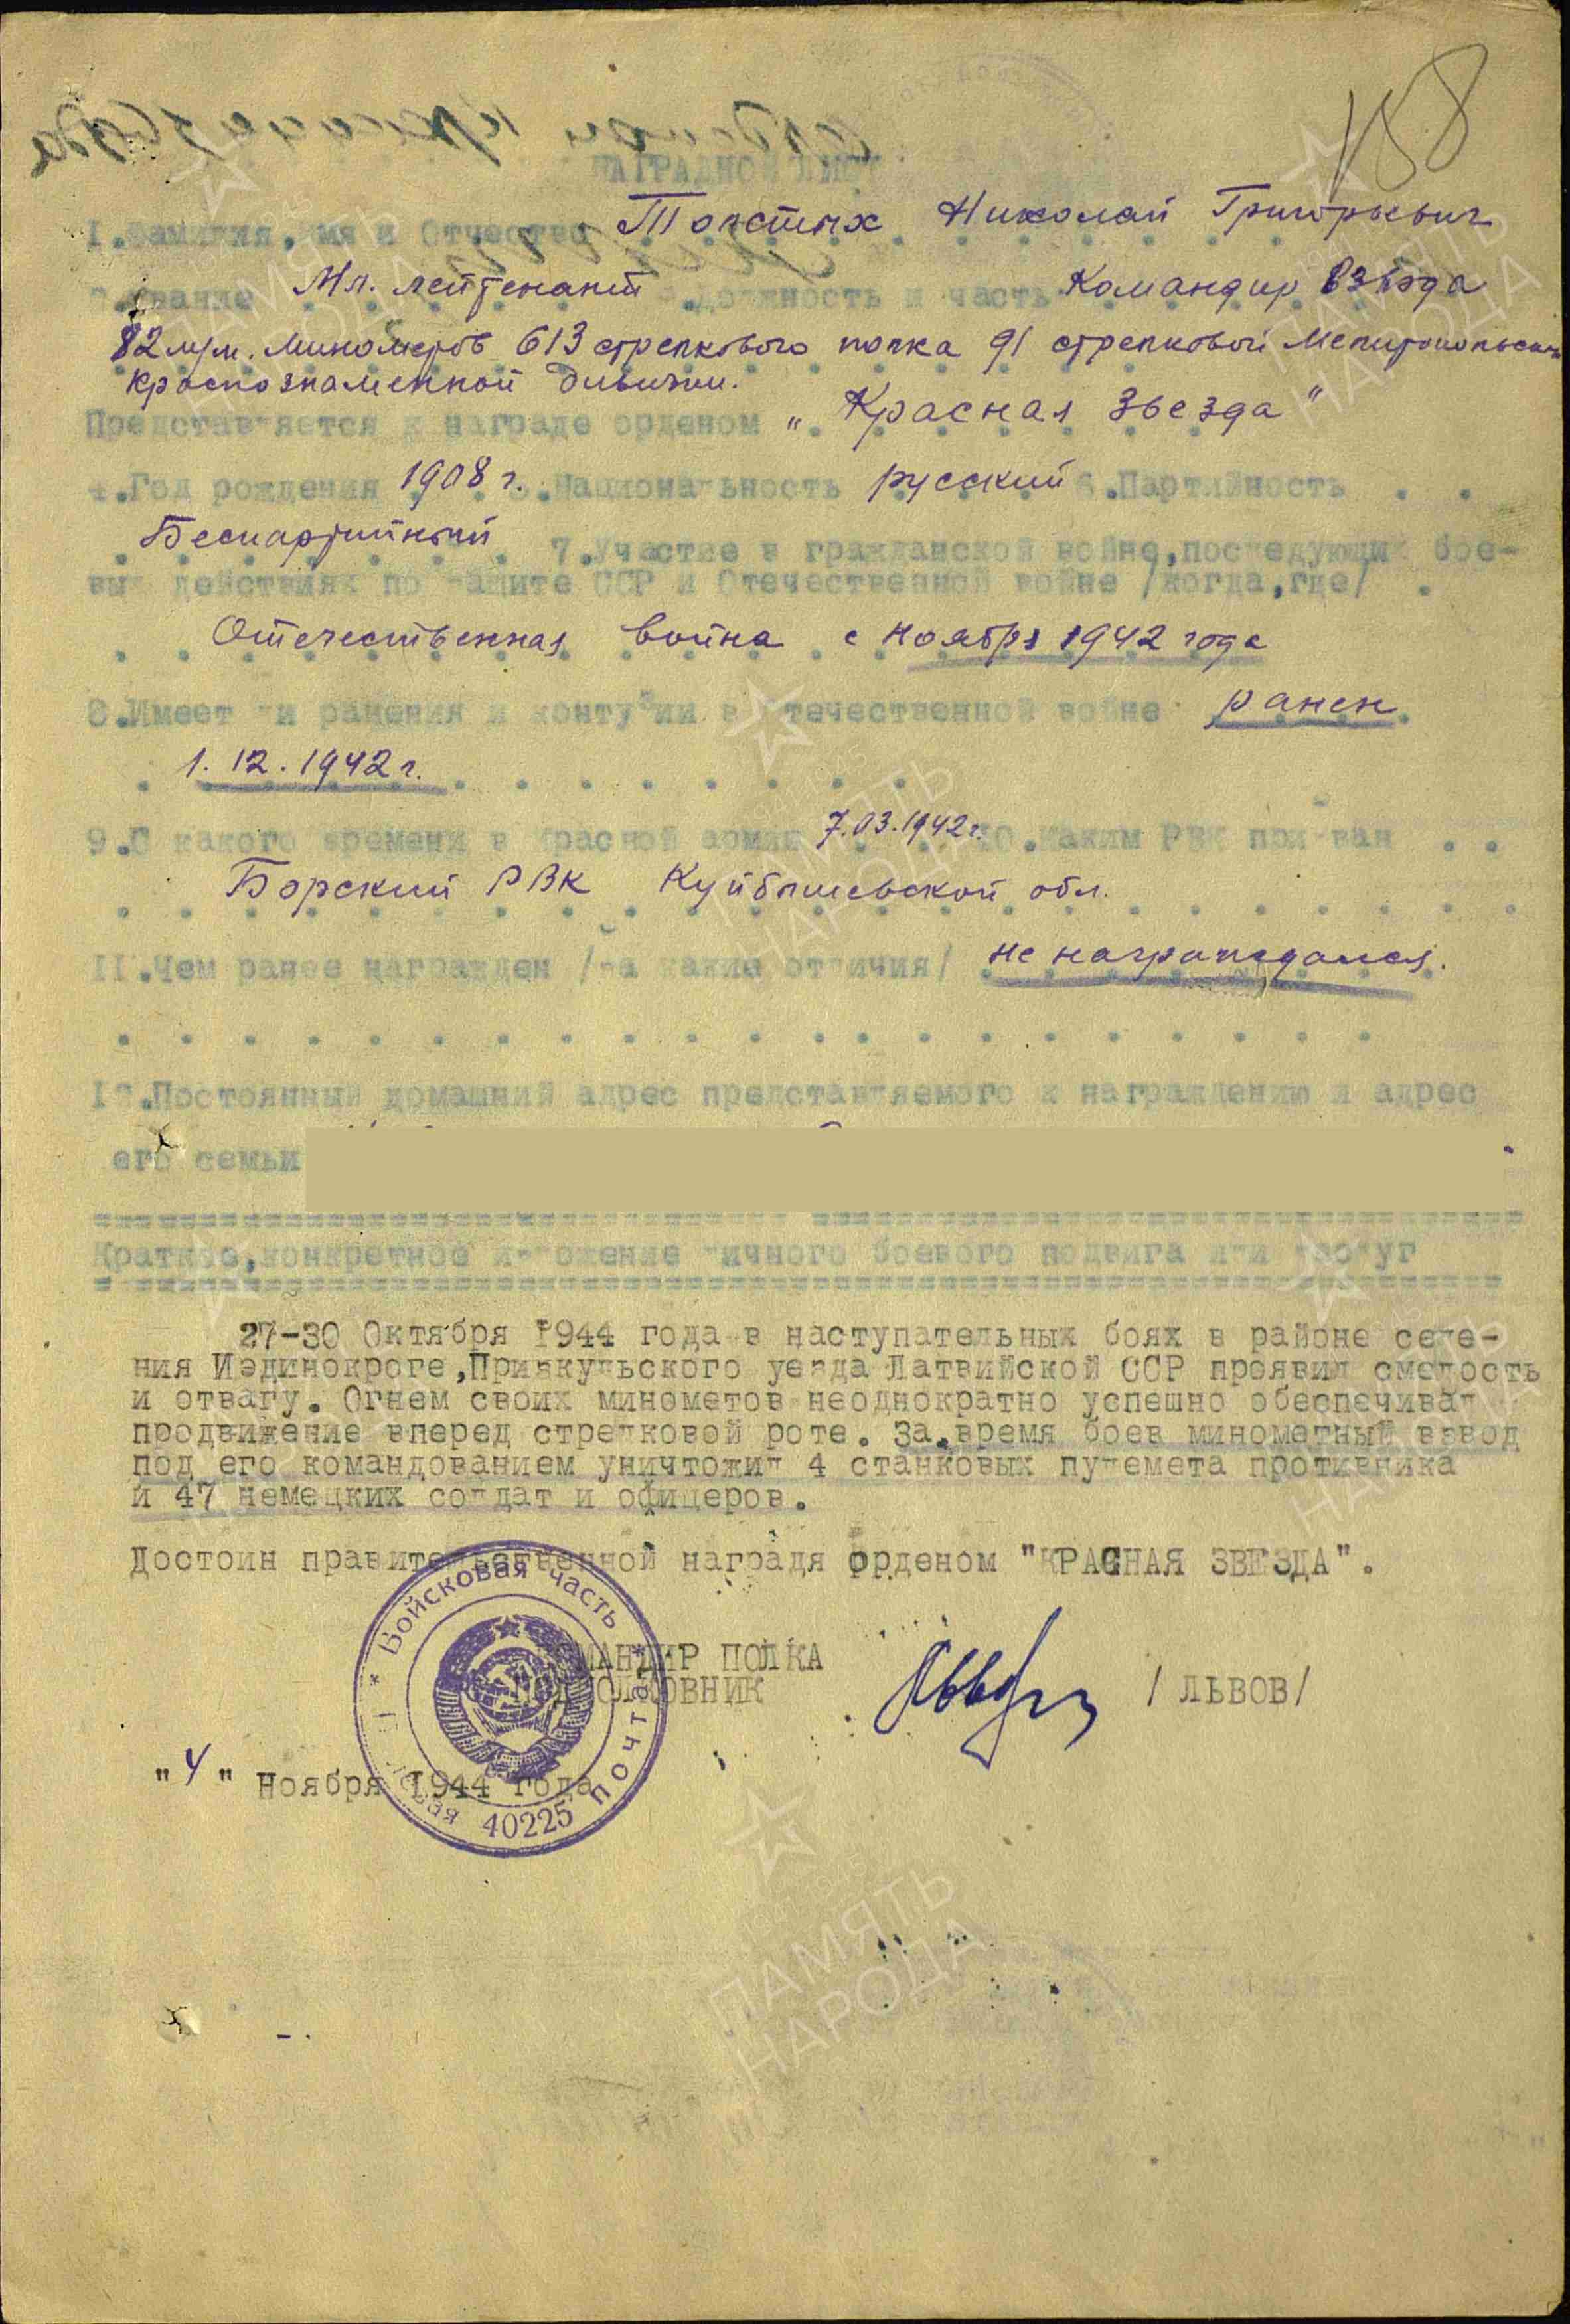 188
НАГРАДНОЙ ЛИСТ
1.Фамилия, имя и Отчество Толстых Николай Григорьевич
2.Звание Мл. лейтенант 3.должность и часть Командир взвода
82 м/м. минометов 613 стрелкового полка 91 стрелковой Мелитопольской
краснознаменной дивизии.
Представляется к награде орденом „Красная Звезда"
4.Год рождения 1908 г. 5.Национальность русский 6.Партийность . .
Беспартийный 7.Участие в гражданской войне,последующих бое-
вых действиях по защите СССР и Отечественной войне /когда,где/ .
Отечественная война с ноября 1942 года
8.Имеет ли ранения и контузии в Отечественной войне ранен
1. 12. 1942 г.
9.С какого времени в Красной армии 7.03.1942 г. 10.Каким РВК призван . .
Борский РВК Куйбышевской обл.
11.Чем ранее награжден /за какие отличия/ не награждался.
12.Постоянный домашний адрес представляемого к награждению и адрес
его семьи
Краткое,конкретное изложение личного боевого подвига или заслуг
27-30 Октября 1944 года в наступательных боях в районе селе-
ния Иэдинокроге,Приэкульского уезда Латвийской ССР проявил смелость
и отвагу. Огнем своих минометов неоднократно успешно обеспечивал
продвижение вперед стрелковой роте. За время боев минометный взвод
под его командованием уничтожил 4 станковых пулемета противника
и 47 немецких солдат и офицеров.
Достоин правительственной наградя орденом "КРАСНАЯ ЗВЕЗДА".
КОМАНДИР ПОЛКА
ПОДПОЛКОВНИК /ЛЬВОВ/
"4" Ноября 1944 года
* Войсковая часть * полевая почта 40225
ПАМЯТЬ НАРОДА